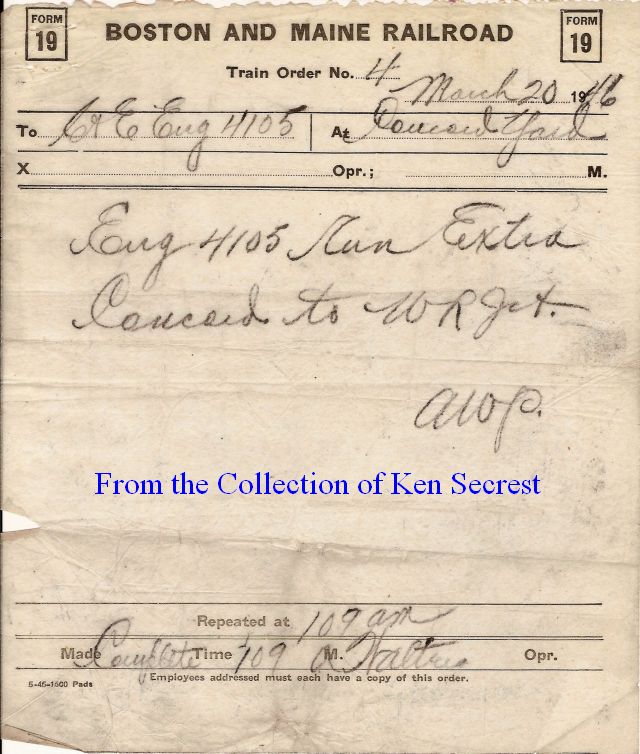 FORM 19 BOSTON AND MAINE RAILROAD FORM 19
Train Order No. 4
March 20 1946
To C&E Eng 4105 At Concord Yard
X Opr.; M.
Eng 4105 Run Extra
Concord to W R Jct.
From the Collection of Ken Secrest
Repeated at 109 am
Made Complete Time 109 M. Opr.
5-45-1500 Pads Employees addressed must each have a copy of this order.